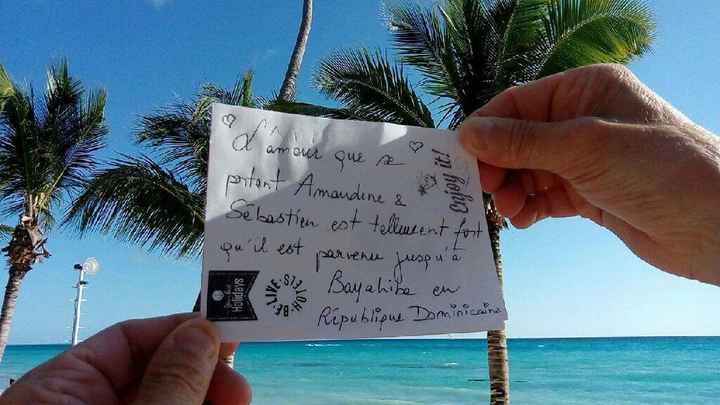 L'amour que se
portent Amandine &
Sébastien est tellement fort
qu'il est parvenu jusqu'à
Bayahibe en
République Dominicaine
Enjoy it!
Holidays
BE LIVE HOTELS